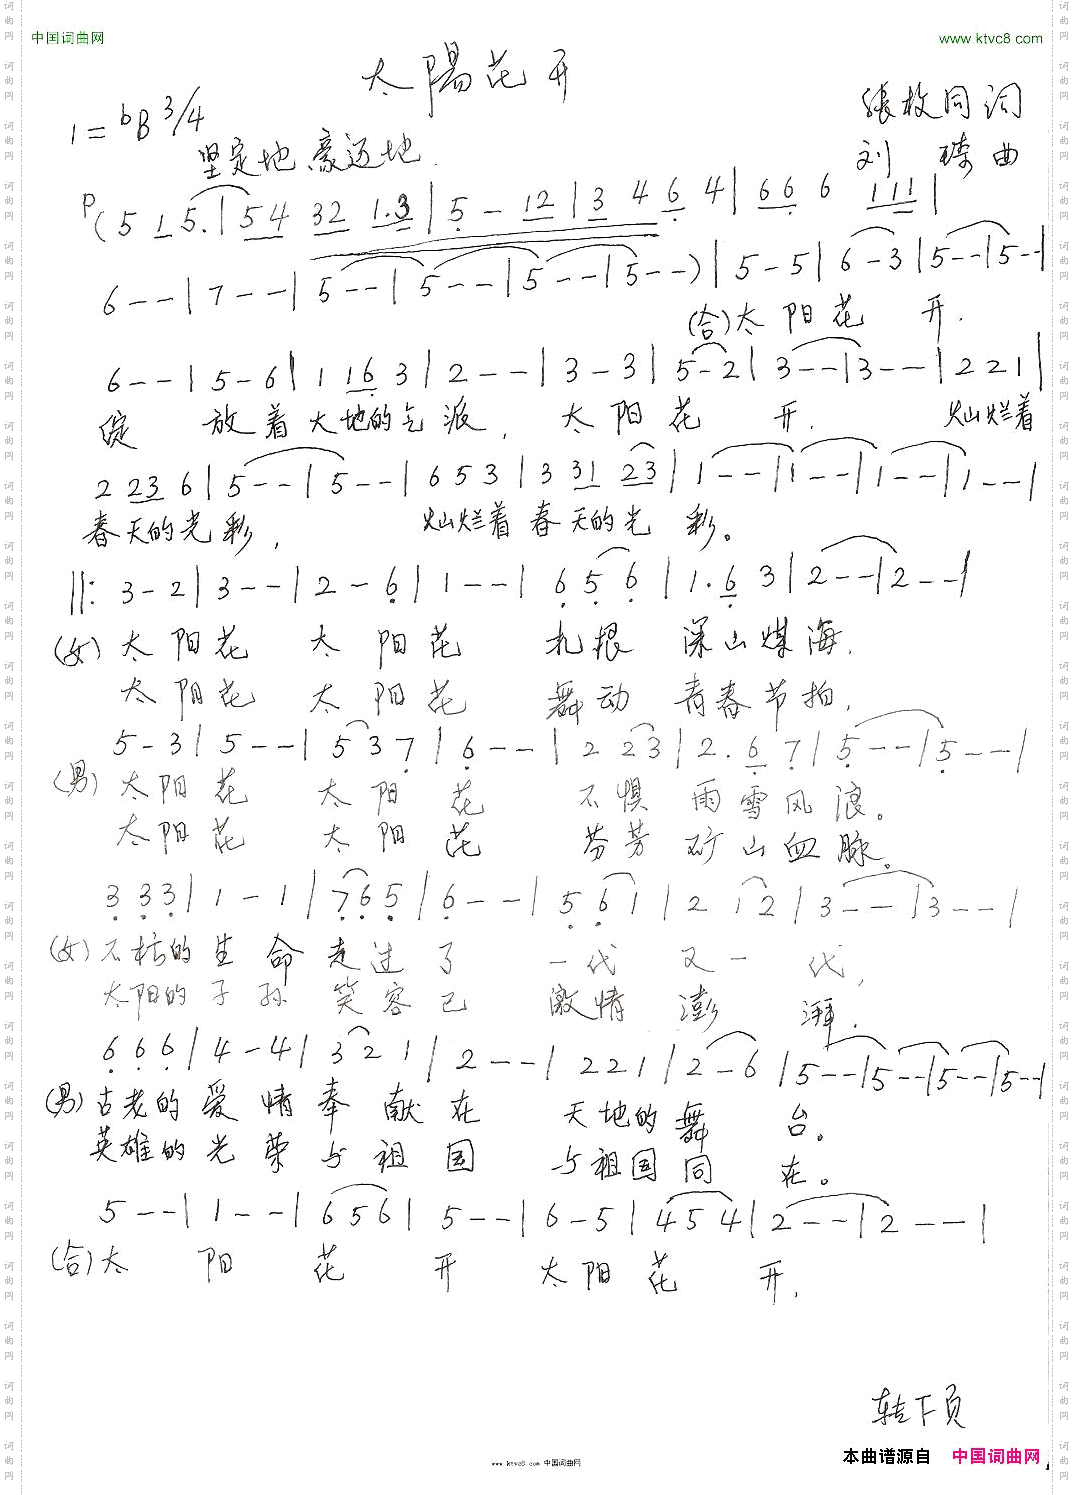 中国词曲网
www.ktvc8.com
太陽花开
1=bB 3/4
张枚同词
坚定地 豪迈地
刘 琦曲
P(5 1 5.|5 4 32 1.3|5 - 12|3 4 6 4|6 6 6 111|
6 - -|7 - -|5 - -|5 - -|5 - -|5 - -)|5 - 5|6 - 3|5 - -|5 - -|
(合)太 阳花 开.
6 - -|5 - 6|1 16 3|2 - -|3 - 3|5 - 2|3 - -|3 - -|2 2 1|
绽 放着大地的气派, 太阳花 开. 灿烂着
2 23 6|5 - -|5 - -|6 5 3|3 31 23|1 - -|1 - -|1 - -|1 - -|
春天的光彩, 灿烂着春天的光 彩。
||: 3 - 2|3 - -|2 - 6|1 - -|6 5 6|1. 6 3|2 - -|2 - -|
(女)太阳花 太阳花 扎根 深山煤海.
太阳花 太阳花 舞动 青春节拍.
5 - 3|5 - -|5 3 7|6 - -|2 23|2. 6 7|5 - -|5 - -|
(男)太阳花 太阳花 不惧 雨雪风浪。
太阳花 太阳花 芬芳 矿山血脉。
3 3 3|1 - 1|7 6 5|6 - -|5 6 1|2 12|3 - -|3 - -|
(女)不朽的生命走过了 一代 又一 代,
太阳的子孙 笑容已 激情 澎 湃.
6 6 6|4 - 4|3 2 1|2 - -|2 2 1|2 - 6|5 - -|5 - -|5 - -|5 - -|
(男)古老的爱情奉献在 天地的舞 台。
英雄的光荣与祖国 与祖国同 在。
5 - -|1 - -|6 5 6|5 - -|6 - 5|4 5 4|2 - -|2 - -|
(合)太 阳 花 开 太阳 花 开.
转下页
本曲谱源自 中国词曲网
www.ktvc8.com 中国词曲网